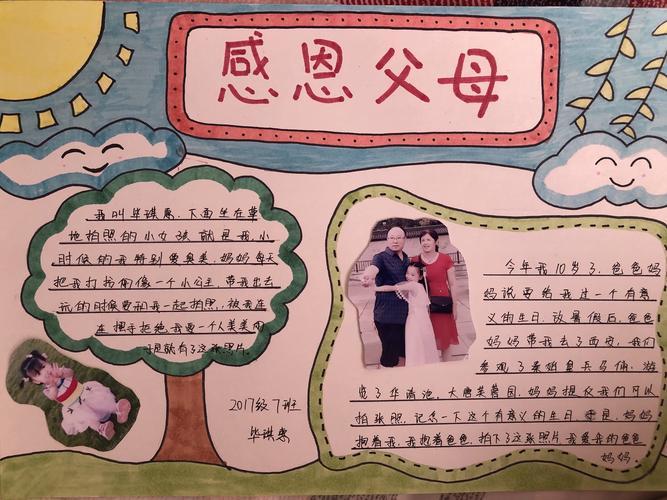 感恩父母
我叫毕琪惠，下面坐在草
地拍照的小女孩就是我，小
时候的我特别爱臭美，妈妈每天
把我打扮的像一个小公主，带我出去
玩的时候要和我一起拍照，被我连
连摆手拒绝，我要一个人美美的
于是就有了这张照片。
2017级7班
毕琪惠
今年我10岁了，爸爸妈
妈说要给我过一个有意
义的生日，放暑假后，爸爸
妈妈带我去了西安，我们
参观了秦始皇兵马俑，游
览了华清池，大唐芙蓉园，妈妈提议我们可以
拍张照，记念一下这个有意义的生日，于是，妈妈
抱着我，我抱着爸爸，拍下了这张照片，我爱我的爸爸
妈妈。